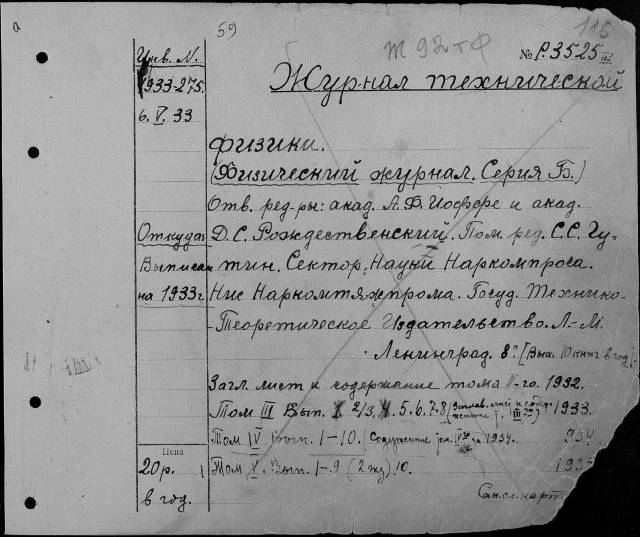 а
59)
116
Ж 92 т Ф
№ Р.3525
Инв. N.
1933-275.
6. V. 33
Журнал технической
физики.
(Физический журнал. Серия Б.)
Отв. ред-ры: акад. А.Ф. Иоффе и акад.
Откуда: Д.С. Рождественский. Пом. ред. С.С. Гу-
Выписан тин. Сектор Науки Наркомпроса.
на 1933 г. Нис Наркомтяжпрома. Госуд. Технико-
-Теоретическое Издательство. Л.-М.
Ленинград. 8° [Вых. 10 книг в год.]
Загл. лист и содержание тома II-го. 1932.
Том III Вып. 1, 2/3, 4. 5. 6. 7. 8 1933.
Том IV Вып. 1-10. (Содержение 1934. 934
Цена
20 р. Том V. Вып. 1-9 (2 экз) 10. 193
в год.
Сам.сл. карт.